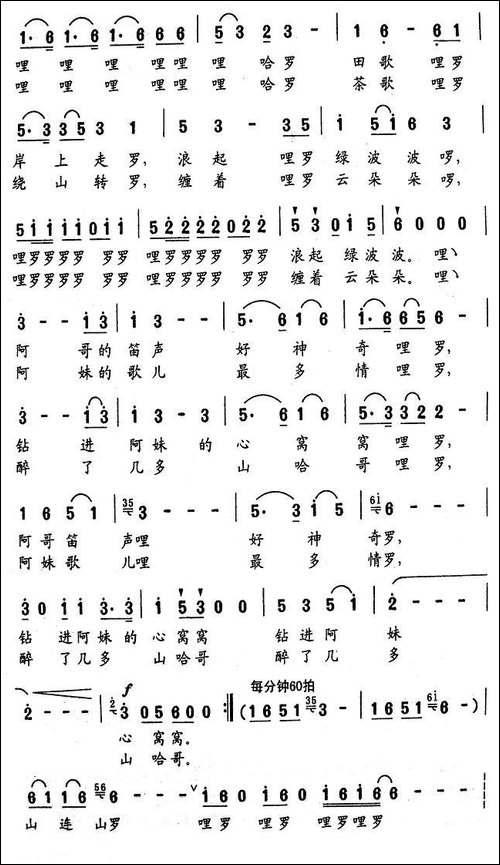 1· 6 1· 6 1· 6 6 6 | 5 3 2 3 - | 1 6 - 6 1 |
哩 哩 哩 哩哩 哩 哈 罗 田 歌 哩罗
哩 哩 哩 哩哩 哩 哈 罗 茶 歌 哩罗
5· 3 3 5 3 1 | 5 3 - 3 5 | i 5 i 6 3 |
岸 上 走 罗, 浪 起 哩罗 绿 波 波 啰,
绕 山 转 罗, 缠 着 哩罗 云 朵 朵 啰,
5 i i i i 0 i i | 5 2 2 2 2 0 2 2 | 5 3 0 i 5 | 6 0 0 0 |
哩罗罗罗罗 罗罗 哩罗罗罗罗 罗罗 浪起 绿波 波。 哩
哩罗罗罗罗 罗罗 哩罗罗罗罗 罗罗 缠着 云朵 朵。 哩
3 - - i 3 | i 3 - - | 5· 6 1 6 | 1· 6 6 5 6 |
阿 哥的 笛声 好 神 奇哩 罗,
阿 妹的 歌儿 最 多 情哩 罗,
3 - - i 3 | i 3 - 3 | 5· 6 1 6 | 5· 3 3 2 2 - |
钻 进 阿妹 的 心 窝 窝 哩罗,
醉 了 几多 山 哈 哥 哩罗,
1 6 5 1 | 35 3 - - - | 5· 3 i 5 | 6i 6 - - - |
阿哥笛 声哩 好 神 奇罗,
阿妹歌 儿哩 最 多 情罗,
3 0 i i 3· 3 | i 5 3 0 0 | 5 3 5 i | 2 - - - |
钻 进阿妹的 心 窝窝 钻进阿 妹
醉 了几多 山 哈哥 醉了几 多
每分钟60拍
2 - - - | 2 3 0 5 6 0 0 :‖ (1 6 5 1 35 3 - | 1 6 5 1 6i 6 -)|
心 窝窝。
山 哈哥。
6 1 1 6 56 6 - | - - - | i 6 0 i 6 0 i 6 i 6 | 6 - - -
山 连 山罗 哩罗 哩罗 哩罗哩罗